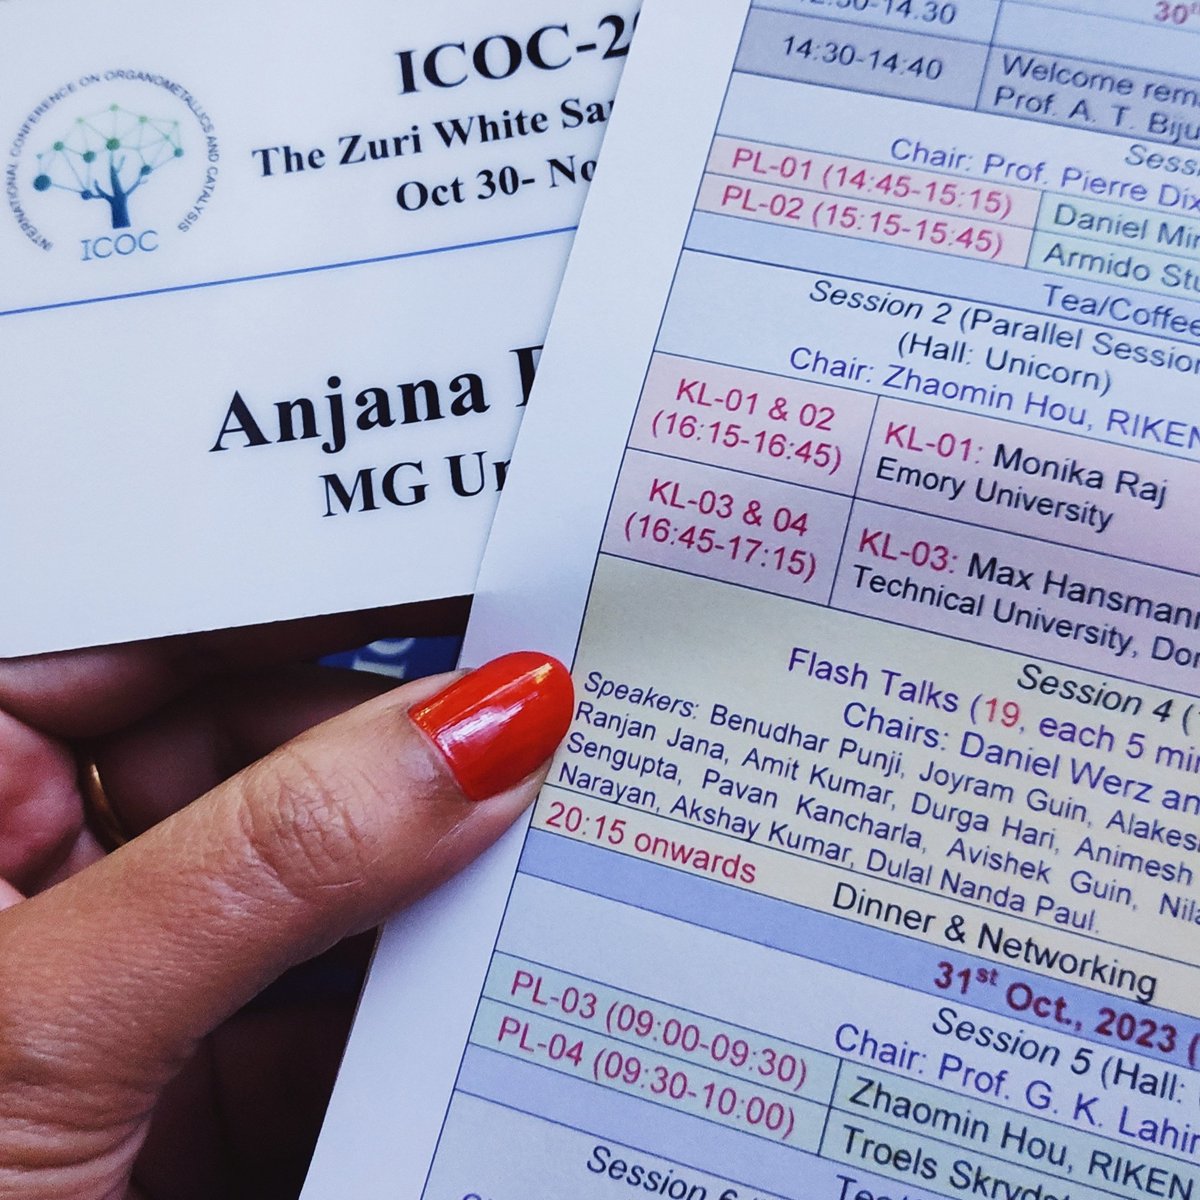 INTERNATIONAL CONFERENCE ON ORGANOMETALLICS AND CATALYSIS
ICOC
ICOC-2
The Zuri White Sa
Oct 30- No
Anjana
MG Un
14.30
30
14:30-14:40
Welcome rem
Prof. A. T. Biju
Sess
Chair: Prof. Pierre Dix
PL-01 (14:45-15:15)
Daniel Mir
PL-02 (15:15-15:45)
Armido Stu
Tea/Coffee
Session 2 (Parallel Session
(Hall: Unicorn)
Chair: Zhaomin Hou, RIKEN
KL-01 & 02
(16:15-16:45)
KL-01: Monika Raj
Emory University
KL-03 & 04
(16:45-17:15)
KL-03: Max Hansmann
Technical University, Dor
Session 4 (
Flash Talks (19, each 5 min
Chairs: Daniel Werz an
Speakers: Benudhar Punji, Joyram Guin, Alakes
Ranjan Jana, Amit Kumar, Durga Hari, Animesh
Sengupta, Pavan Kancharla, Avishek Guin, Nila
Narayan, Akshay Kumar, Dulal Nanda Paul.
20:15 onwards
Dinner & Networking
31st Oct., 2023 (
Session 5 (Hall:
Chair: Prof. G. K. Lahir
PL-03 (09:00-09:30)
Zhaomin Hou, RIKEN
PL-04 (09:30-10:00)
Troels Skryd
Tea
Session 6